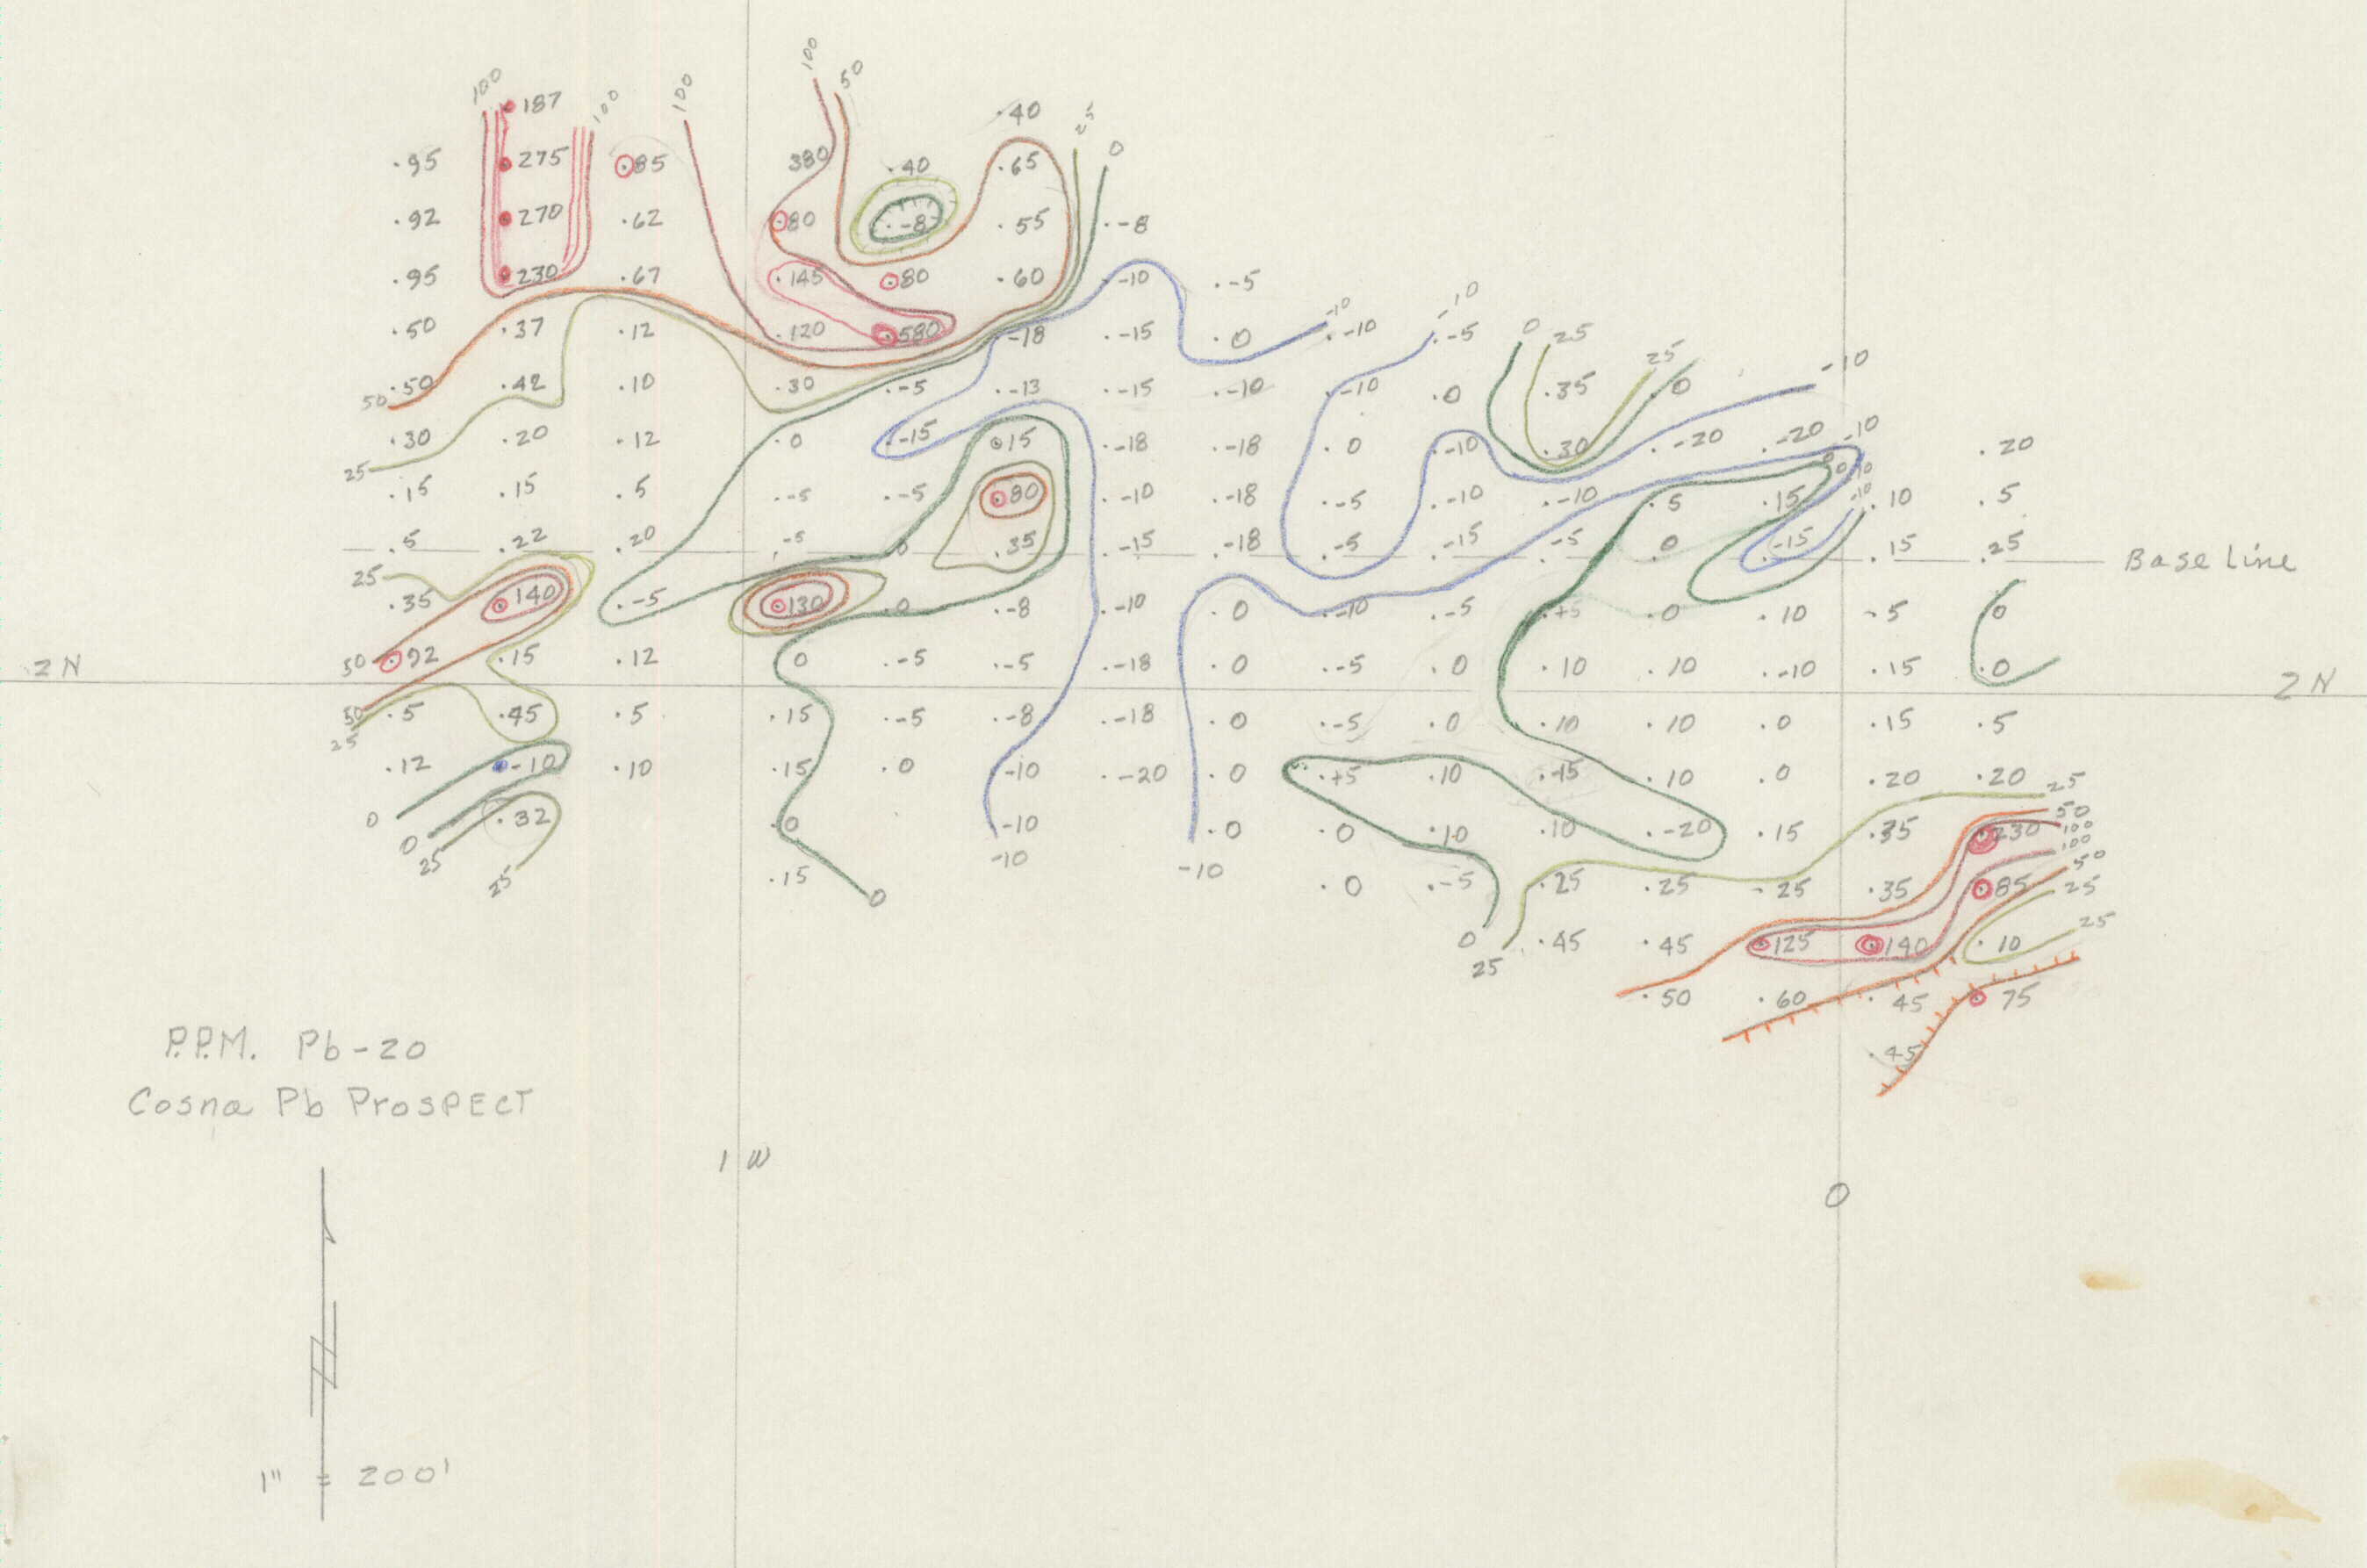 100 50
100 187 100 100 .40 25
.95 275 85 380 .40 .65 0
.92 270 .62 80 -8 .55 -8
.95 230 .67 .145 80 .60 -10 -5 -10
.50 .37 .12 .120 580 -18 -15 0 -10 -10 -5 0 25 25
50 .50 .42 .10 .30 -5 -13 -15 -10 -10 .0 .35 0 -10
.30 .20 .12 .0 -15 15 -18 -18 0 -10 .30 -20 -20 -10 .20
25 .15 .15 .5 -5 -5 80 -10 -18 -5 -10 -10 .5 .15 .10 .5
.5 .22 .20 -5 0 .35 -15 -18 -5 -15 -5 .0 -15 .15 .25 Base Line
25 .35 140 -5 130 .0 -8 -10 0 -10 -5 +5 .0 .10 -5 0
2N 50 92 .15 .12 0 -5 -5 -18 .0 -5 .0 .10 .10 -10 .15 .0 2N
50 .5 .45 .5 .15 -5 -8 -18 .0 -5 .0 .10 .10 .0 .15 .5
25 .12 -10 .10 .15 .0 -10 -20 .0 +5 .10 .15 .10 .0 .20 .20 25
0 .32 .0 -10 .0 .0 .10 .10 -20 .15 .35 230 50 100
0 25 25 .15 0 -10 -10 .0 -5 .25 .25 25 .35 85 100 50 25
0 25 .45 .45 125 140 .10 25
.50 .60 .45 75
.45
P.P.M. Pb-20
Cosna Pb Prospect
1 W
0
1" = 200'